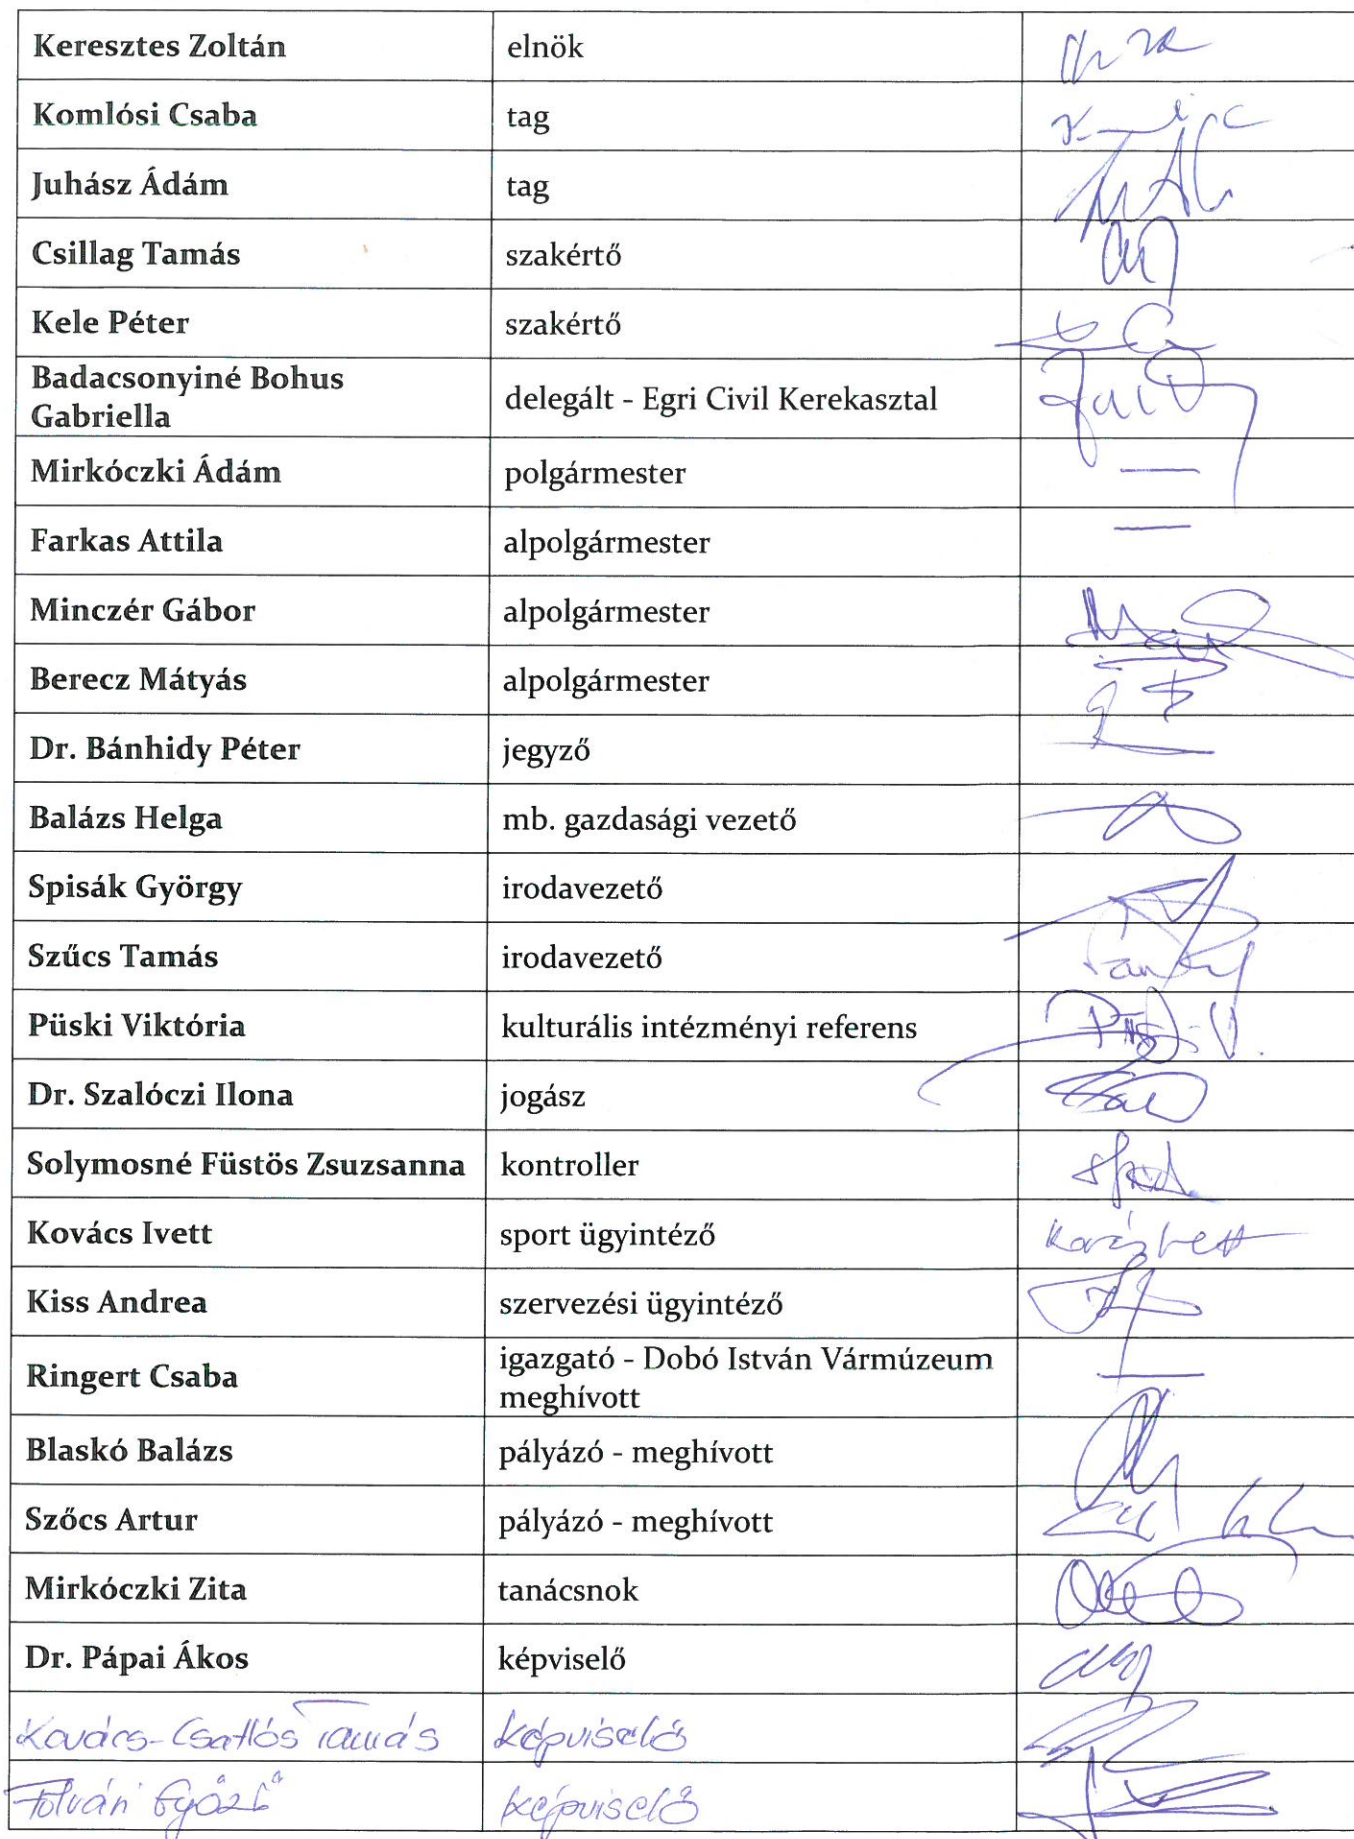 Keresztes Zoltán elnök
Komlósi Csaba tag
Juhász Ádám tag
Csillag Tamás szakértő
Kele Péter szakértő
Badacsonyiné Bohus
Gabriella delegált - Egri Civil Kerekasztal
Mirkóczki Ádám polgármester —
Farkas Attila alpolgármester —
Minczér Gábor alpolgármester
Berecz Mátyás alpolgármester
Dr. Bánhidy Péter jegyző
Balázs Helga mb. gazdasági vezető
Spisák György irodavezető
Szűcs Tamás irodavezető
Püski Viktória kulturális intézményi referens
Dr. Szalóczi Ilona jogász
Solymosné Füstös Zsuzsanna kontroller
Kovács Ivett sport ügyintéző Kovács Ivett
Kiss Andrea szervezési ügyintéző
Ringert Csaba igazgató - Dobó István Vármúzeum
meghívott —
Blaskó Balázs pályázó - meghívott
Szőcs Artur pályázó - meghívott
Mirkóczki Zita tanácsnok
Dr. Pápai Ákos képviselő
Kovács-Csatlós Tamás képviselő
Győző képviselő